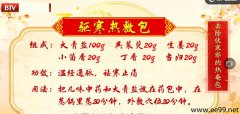 BTV
驱寒热敷包
组成：大青盐100g 吴茱萸20g 生姜20g
小茴香20g 丁香20g 当归20g
功效：温经通脉，祛寒止痛
用法：将几味中药和大青盐放在药包中，在
蒸锅里蒸20分钟，外敷穴位20分钟。
去除伏寒邪的热奄包
www.ee99.net